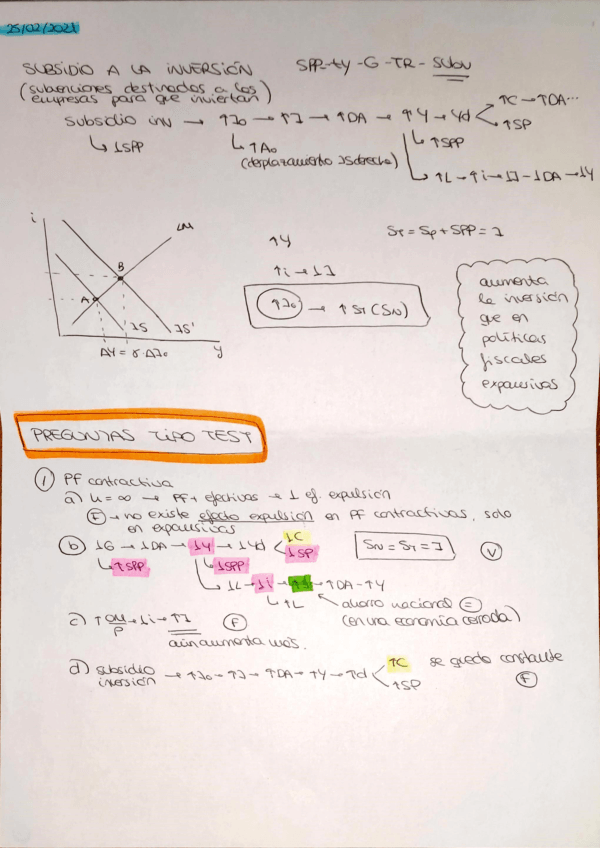 25/02/2021
SUBSIDIO A LA INVERSIÓN
(subvenciones destinadas a las
empresas para que inviertan)
SPP = ty - G - TR - SUBIN
Subsidio inv → ↑I₀ → ↑I → ↑DA → ↑Y → Yd
↑C → ↑DA...
↑SP
↳ ↓SPP
↳ ↑A₀
(desplazamiento IS derecha)
↳ ↑SPP
↳ ↑L → ↑i → ↓I → ↓DA → ↓Y
i
LM
B
A
IS
IS'
ΔY = γ·ΔI₀
y
↑Y
↑i → ↓I
↑I₀ → ↑ST (SN)
ST = Sp + SPP = I
aumenta
la inversión
que en
políticas
fiscales
expansivas
PREGUNTAS TIPO TEST
1 PF contractiva
a) u = ∞ → PF + efectivas → ↓ ef. expulsión
F → no existe efecto expulsión en PF contractivas, solo
en expansivas
b) ↓G → ↓DA → ↓Y → ↓Yd
↓C
↓SP
SN = ST = I
V
↳ ↑SPP
↳ ↓SPP
↳ ↓L → ↓i → ↑I → ↑DA → ↑Y
↳ ↑L
ahorro nacional =
(en una economía cerrada)
c) ↑OM/P → ↓i → ↑I
F
aún aumenta más.
d) subsidio
inversión
→ ↑I₀ → ↑I → ↑DA → ↑Y → ↑Yd
↑C
↑SP
se queda constante
F